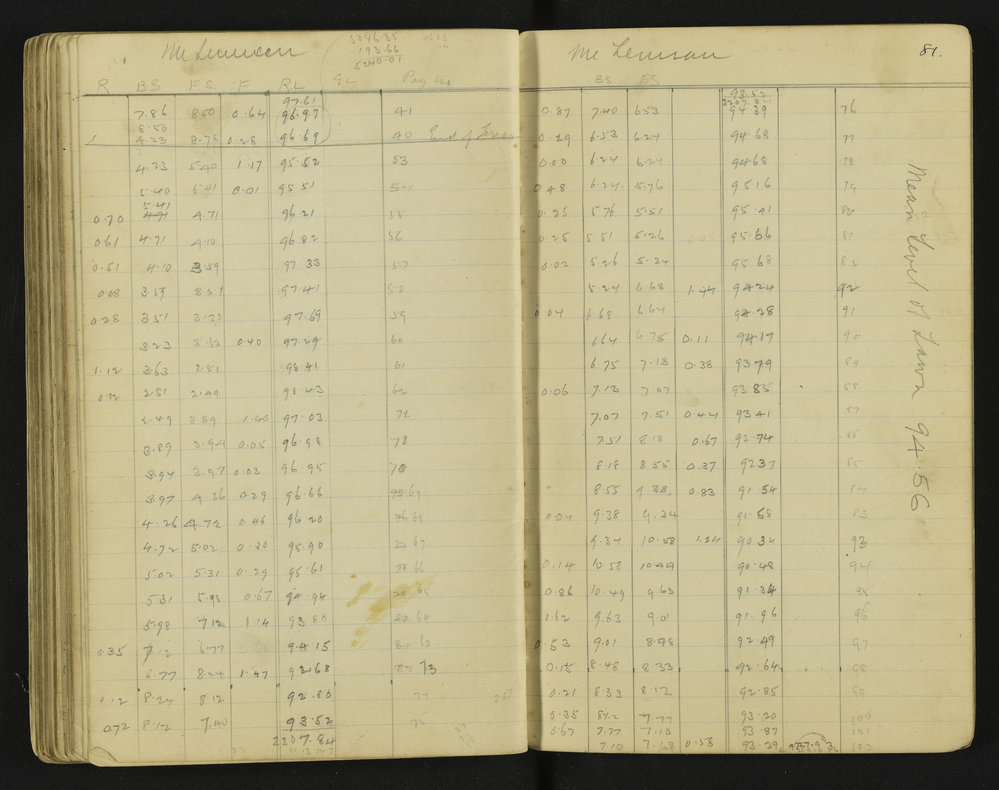 Mc Lennan
5046.35
193.66
5240.01
R BS F.S. F R.L Peg No
97.61
7.86 8.50 0.64 96.97 41
8.50
4.23 8.78 0.28 96.69 40 End of
4.23 5.40 1.17 95.52 53
5.40 5.41 0.01 95.51 54
5.41
0.70 4.71 4.71 96.21 55
0.61 4.71 4.10 96.82 56
0.51 4.10 3.59 97.33 57
0.08 3.59 3.51 97.41 58
0.28 3.51 3.23 97.69 59
3.23 3.63 0.40 97.29 60
1.12 3.63 2.51 98.41 61
0.02 2.51 2.49 98.43 62
2.49 3.89 1.40 97.03 72
3.89 3.94 0.05 96.98 71
3.94 3.97 0.03 96.95 70
3.97 4.26 0.29 96.66 69
4.26 4.72 0.46 96.20 68
4.72 5.02 0.30 95.90 67
5.02 5.31 0.29 95.61 66
5.31 5.98 0.67 94.94 65
5.98 7.12 1.14 93.80 64
0.35 7.12 6.77 94.15 63
6.77 8.24 1.47 92.68 73
0.12 8.24 8.12 92.80 74
0.72 8.12 7.40 93.52 75
2207.84
Mc Lennan 81.
BS FS
93.52
2207.84
0.87 7.40 6.53 94.39 76
0.29 6.53 6.24 94.68 77
0.00 6.24 6.24 94.68 78
0.48 6.24 5.76 95.16 79
0.25 5.76 5.51 95.41 80
0.25 5.51 5.26 95.66 81
0.02 5.26 5.24 95.68 82
5.24 6.68 1.44 94.24 92
0.04 6.68 6.64 94.28 91
6.64 6.75 0.11 94.17 90
6.75 7.13 0.38 93.79 89
0.06 7.13 7.07 93.85 88
7.07 7.51 0.44 93.41 87
7.51 8.18 0.67 92.74 86
8.18 8.55 0.37 92.37 85
8.55 9.38 0.83 91.54 84
0.04 9.38 9.34 91.58 83
9.34 10.58 1.24 90.34 93
0.14 10.58 10.44 90.48 94
0.86 10.49 9.63 91.34 95
0.62 9.63 9.01 91.96 96
0.53 9.01 8.48 92.49 97
0.15 8.48 8.33 92.64 98
0.21 8.33 8.12 92.85 99
0.35 8.12 7.77 93.20 100
0.67 7.77 7.10 93.87 101
7.10 7.68 0.58 93.29 102
Mean Level of Lawn 94.56